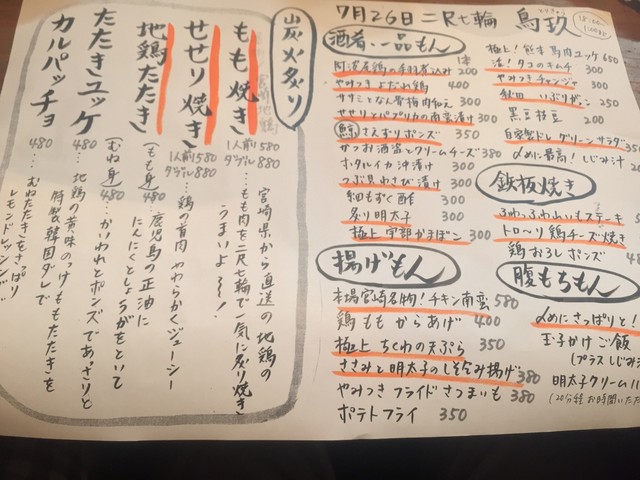 7月26日 二尺七輪 鳥玖
酒肴、一品もん
阿波尾鶏の手羽煮込み 1本 200
やみつき よだれ鶏 400
ササミとなん骨梅肉和え 300
せせりとパプリカの南蛮漬け 300
鯨 さえずりポンズ 350
かつお酒盗とクリームチーズ 380
ホタルイカ沖漬け 300
つぶ貝わさび漬け 300
細もずく酢 300
炙り明太子 350
極上 宇部かまぼこ 300
極上!熊本馬肉ユッケ 650
活!タコのキムチ 300
やみつきチャンジャ 300
秋田 いぶりがっこ 250
黒豆枝豆 200
自家製ドレ グリーンサラダ
〆に最高!しじみ汁
鉄板焼き
ふわふわ山いもステーキ
トロ〜リ鶏チーズ焼き
鶏おろしポンズ
腹もちもん
〆にさっぱり!
玉子かけご飯
(プラスしじみ
明太子クリーム
(20分程お時間いただ
揚げもん
本場宮崎名物!チキン南蛮 580
鶏ももからあげ 400
極上ちくわの天ぷら 350
ささみと明太子のしそ包み揚げ 380
やみつきフライドさつまいも 380
ポテトフライ 350
炭火炙り
もも焼き 1人前 580 ダブル 880
… 宮崎県から直送の地鶏の
もも肉を二尺七輪で一気に炙り焼き
うまいよ〜!
せせり焼き 1人前 580 ダブル 880
… 鶏の首肉 やわらかくジューシー
地鶏たたき (もも身) 480
… 鹿児島の正油に
にんにくとしょうがをといて
(むね身) 480
… かいわれとポンズであっさりと
たたきユッケ 480
… 地鶏の黄味のっけももたたきを
特製韓国ダレで
カルパッチョ 480
… むねたたきをさっぱり
レモンドレッシング…